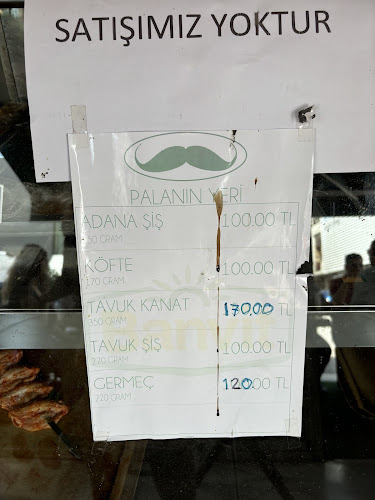 SATIŞIMIZ YOKTUR
PALANIN YERİ
ADANA ŞİŞ 100.00 TL
150 GRAM
KÖFTE 100.00 TL
170 GRAM
TAVUK KANAT 170.00 TL
350 GRAM
TAVUK ŞİŞ 100.00 TL
220 GRAM
GERMEÇ 120.00 TL
220 GRAM